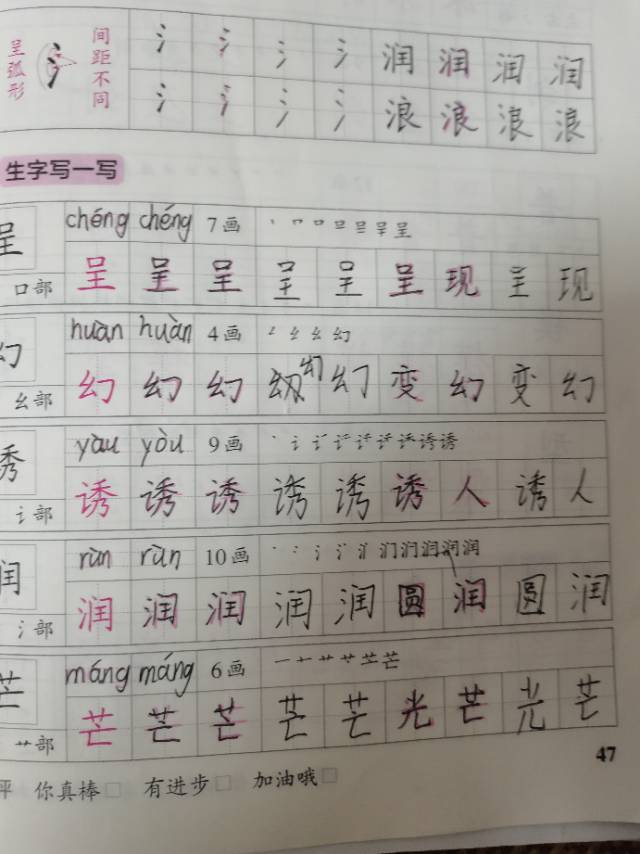 呈弧形 间距不同 氵 氵 氵 氵 润 润 润 润
氵 氵 氵 氵 浪 浪 浪 浪
生字写一写
呈 chéng chéng 7画 丶 口 口 旦 里 早 呈
口部 呈 呈 呈 呈 呈 呈 现 呈 现
幻 huàn huàn 4画 幺 幺 幻
幺部 幻 幻 幻 幻 幻 变 幻 变 幻
诱 yòu yòu 9画 丶 讠 诱 诱
讠部 诱 诱 诱 诱 诱 诱 人 诱 人
润 rùn rùn 10画 丶 氵 润 润 润
氵部 润 润 润 润 润 圆 润 圆 润
芒 máng máng 6画 一 艹 芒
艹部 芒 芒 芒 芒 芒 光 芒 光 芒
47
评 你真棒□ 有进步□ 加油哦□